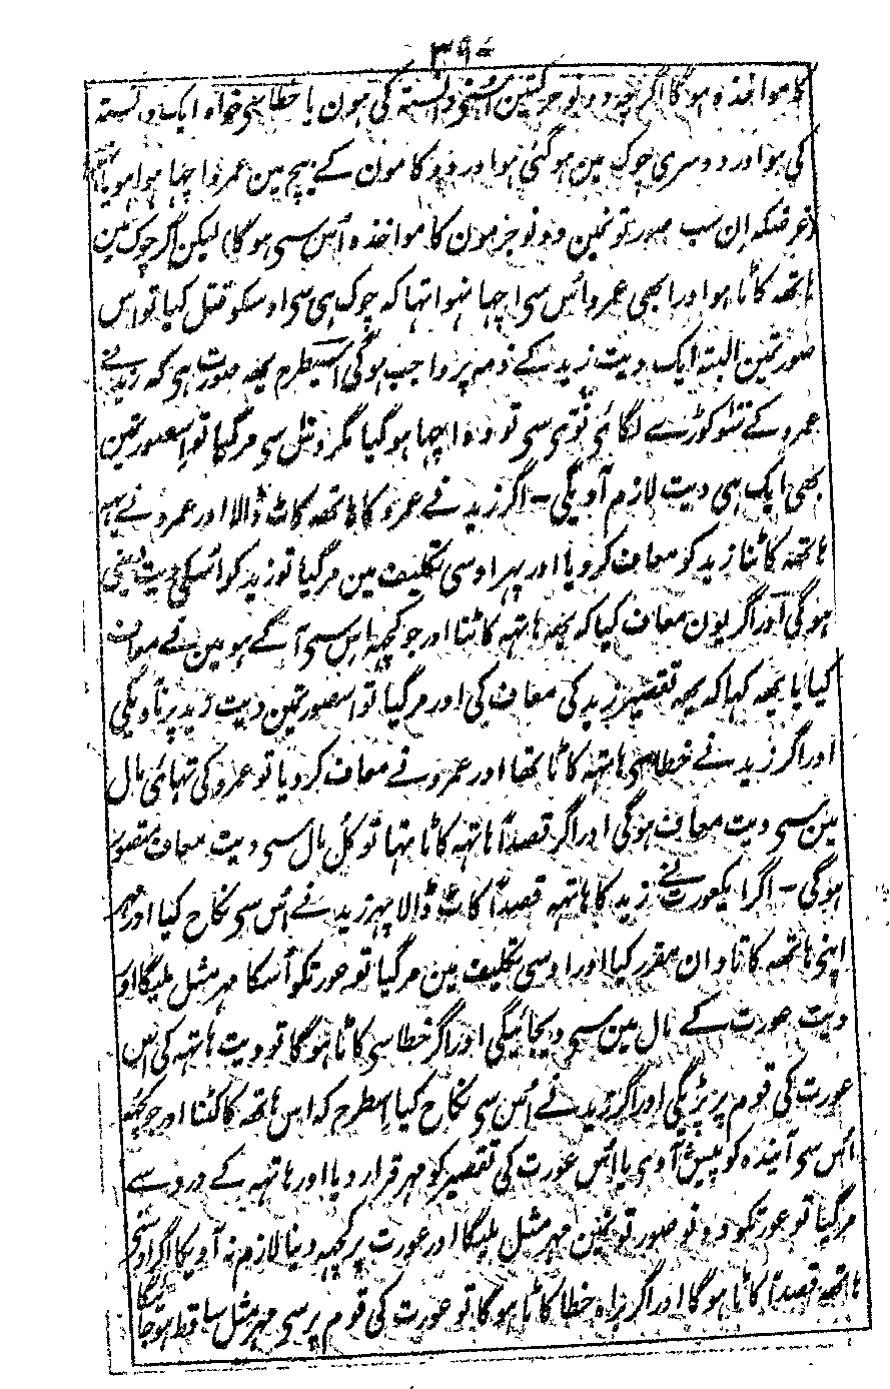 ۳۹۰
کا مواخذہ ہوگا اگرچہ دونو حرکتین اُسنی دانستہ کی ہون یا خطا سی خواہ ایک دانستہ
کی ہو اور دوسری چوک مین ہوگئی ہو اور دونو کامون کے بیچ مین عمرو اچہا ہوا ہو یا
غرضکہ ان سب صورتونمین دونو جرمون کا مواخذہ اُس سی ہوگا لیکن اگر چوک مین
ہاتھہ کاٹا ہو اور ابھی عمرو اُس سی اچہا نہوا تہا کہ چوک ہی سی اوسکو قتل کیا تو اس
صورتمین البتہ ایک دیت زید کے ذمہ پر واجب ہوگی اسیطرح یہہ صورت ہی کہ زید نے
عمرو کے سَو کوڑے لگائی نوّی سی تو وہ اچہا ہوگیا مگر دنل سی مرگیا تو اسصورتمین
بھی ایک ہی دیت لازم آویگی - اگر زید نے عمرو کا ہاتھہ کاٹ ڈالا اور عمرو نے یہہ
ہاتھہ کاٹنا زید کو معاف کردیا اور پہر اوسی تکلیف مین مرگیا تو زید کو اُسکی دیت دینی
ہوگی اور اگر یون معاف کیا کہ یہہ ہاتہہ کاٹنا اور جو کچہہ اس سی آگے ہو مین نے معاف
کیا یا یہہ کہا کہ یہہ تقصیر زید کی معاف کی اور مرگیا تو اسصورتمین دیت زید پر نآویگی
اور اگر زید نے خطا سی ہاتہہ کاٹا تھا اور عمرو نے معاف کردیا تو عمرو کی تہائی مال
مین سی دیت معاف ہوگی اور اگر قصداً ہاتہہ کاٹا تہا تو کل مال سی دیت معاف متصور
ہوگی - اگر ایکعورت نے زید کا ہاتہہ قصداً کاٹ ڈالا پہر زید نے اُس سی نکاح کیا اور مہر
اپنی ہاتھہ کا تاوان مقرر کیا اور اوسی تکلیف مین مرگیا تو عورتکو اُسکا مہر مثل ملیگا او
دیت عورت کے مال مین سی دیجائیگی اور اگر خطا سی کاٹا ہوگا تو دیت ہاتہہ کی اس
عورت کی قوم پر پڑیگی اور اگر زید نے اُس سی نکاح کیا اسطرح کہ اس ہاتھہ کا کٹنا اور جو کچہہ
اُس سی آیندہ کو پیش آوی یا اُس عورت کی تقصیر کو مہر قرار دیا اور ہاتہہ کے درد سے
مرگیا تو عورتکو دونو صورتونمین مہر مثل ملیگا اور عورت پر کچہہ دینا لازم نہ آویگا اگر اوسنی
ہاتھہ قصداً کاٹا ہوگا اور اگر براہ خطا کاٹا ہوگا تو عورت کی قوم پر سی مہر مثل ساقط ہوجائیگا